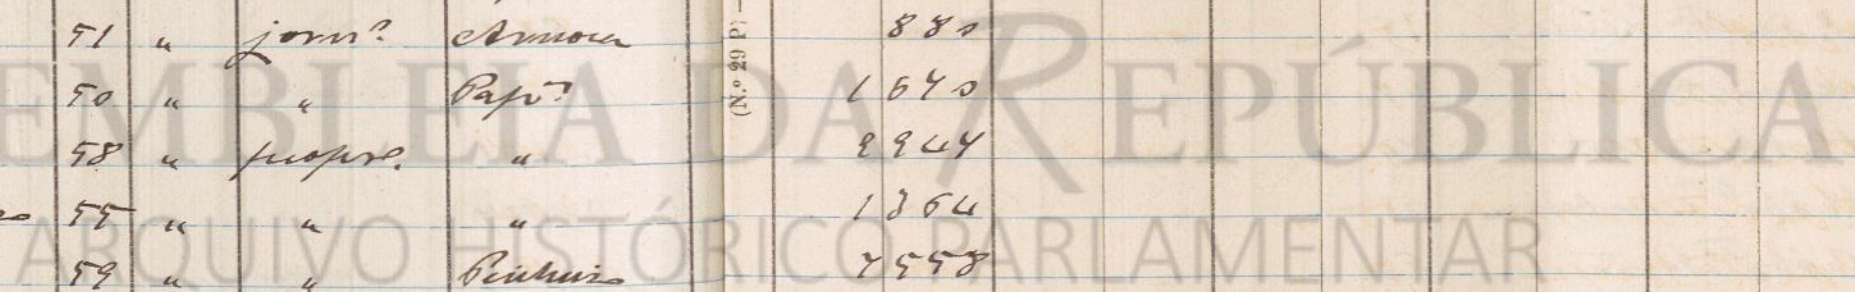 51 " jornº Amoreira 880
50 " " Papº 1 640
58 " propro. " 2 244
55 " " " 1 364
59 " " Pinheiro 7 558
(N.º 29 P) —
EMBLEIA DA REPÚBLICA
ARQUIVO HISTÓRICO PARLAMENTAR